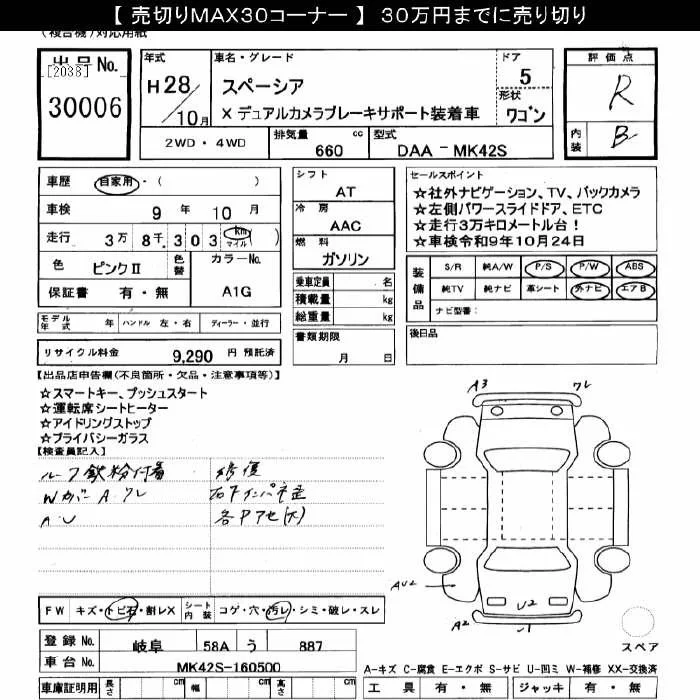 【 売切りMAX30コーナー 】 30万円までに売り切り
(複合機)対応用紙
出品No.
[2038]
30006
年式
H28/10月
車名・グレード
スペーシア
X デュアルカメラブレーキサポート装着車
ドア
5
形状
ワゴン
評価点
R
内装
B
2WD・4WD
排気量
660
cc
型式
DAA－MK42S
車歴 自家用・( )
車検 9年 10月
走行 3万 8千.303 km マイル ( )
色 ピンクⅡ
色替
カラーNo.
A1G
保証書 有・無
シフト
AT
冷房
AAC
燃料
ガソリン
乗車定員 名
積載量 kg
総重量 kg
書類期限
月 日
セールスポイント
☆社外ナビゲーション、TV、バックカメラ
☆左側パワースライドドア、ETC
☆走行3万キロメートル台!
☆車検令和9年10月24日
装備品
S/R 純A/W P/S P/W ABS
純TV 純ナビ 革シート 外ナビ エアB
ナビ型番:
後日品
モデル年式 年 ハンドル 左・右 ディーラー・並行
リサイクル料金 9,290 円 預託済
【出品店申告欄(不良箇所・欠品・注意事項等)】
☆スマートキー、プッシュスタート
☆運転席シートヒーター
☆アイドリングストップ
☆プライバシーガラス
【検査員記入】
ルーフ鉄粉付着
Wガラ A.ワレ
A.U
修復
右Fインパネ歪
各Pアセ(大)
A3
ワレ
AU2
A2
U2
スペア
FW キズ・トビ石・割レX
シート内装 コゲ・穴・汚レ・シミ・破レ・スレ
登録No. 岐阜 58A う 887
車台No. MK42S-160500
車庫証明用 長さ cm 幅 cm 高さ cm
A-キズ C-腐食 E-エクボ S-サビ U-凹ミ W-補修 XX-交換済
工具 有・無 ジャッキ 有・無